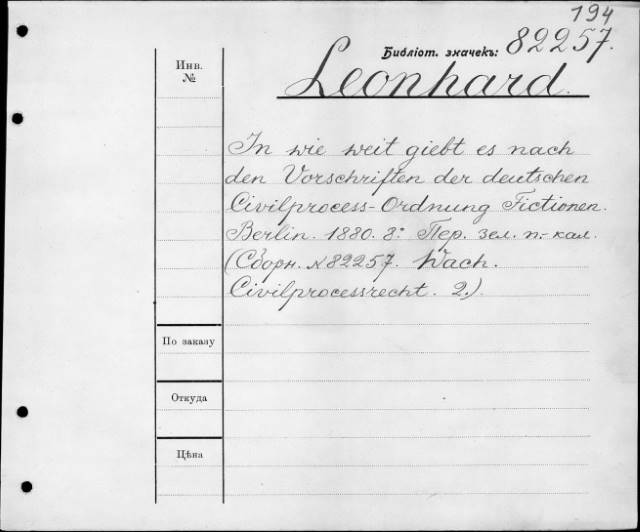 194
Библіот. значекъ: 82257.
Инв.
№
Leonhard.
In wie weit giebt es nach
den Vorschriften der deutschen
Civilprocess-Ordnung Fictionen.
Berlin. 1880. 8º Пер. зел. п.-кал.
(Сборн. №82257. Wach.
Civilprocessrecht. 2.)
По заказу
Откуда
Цѣна